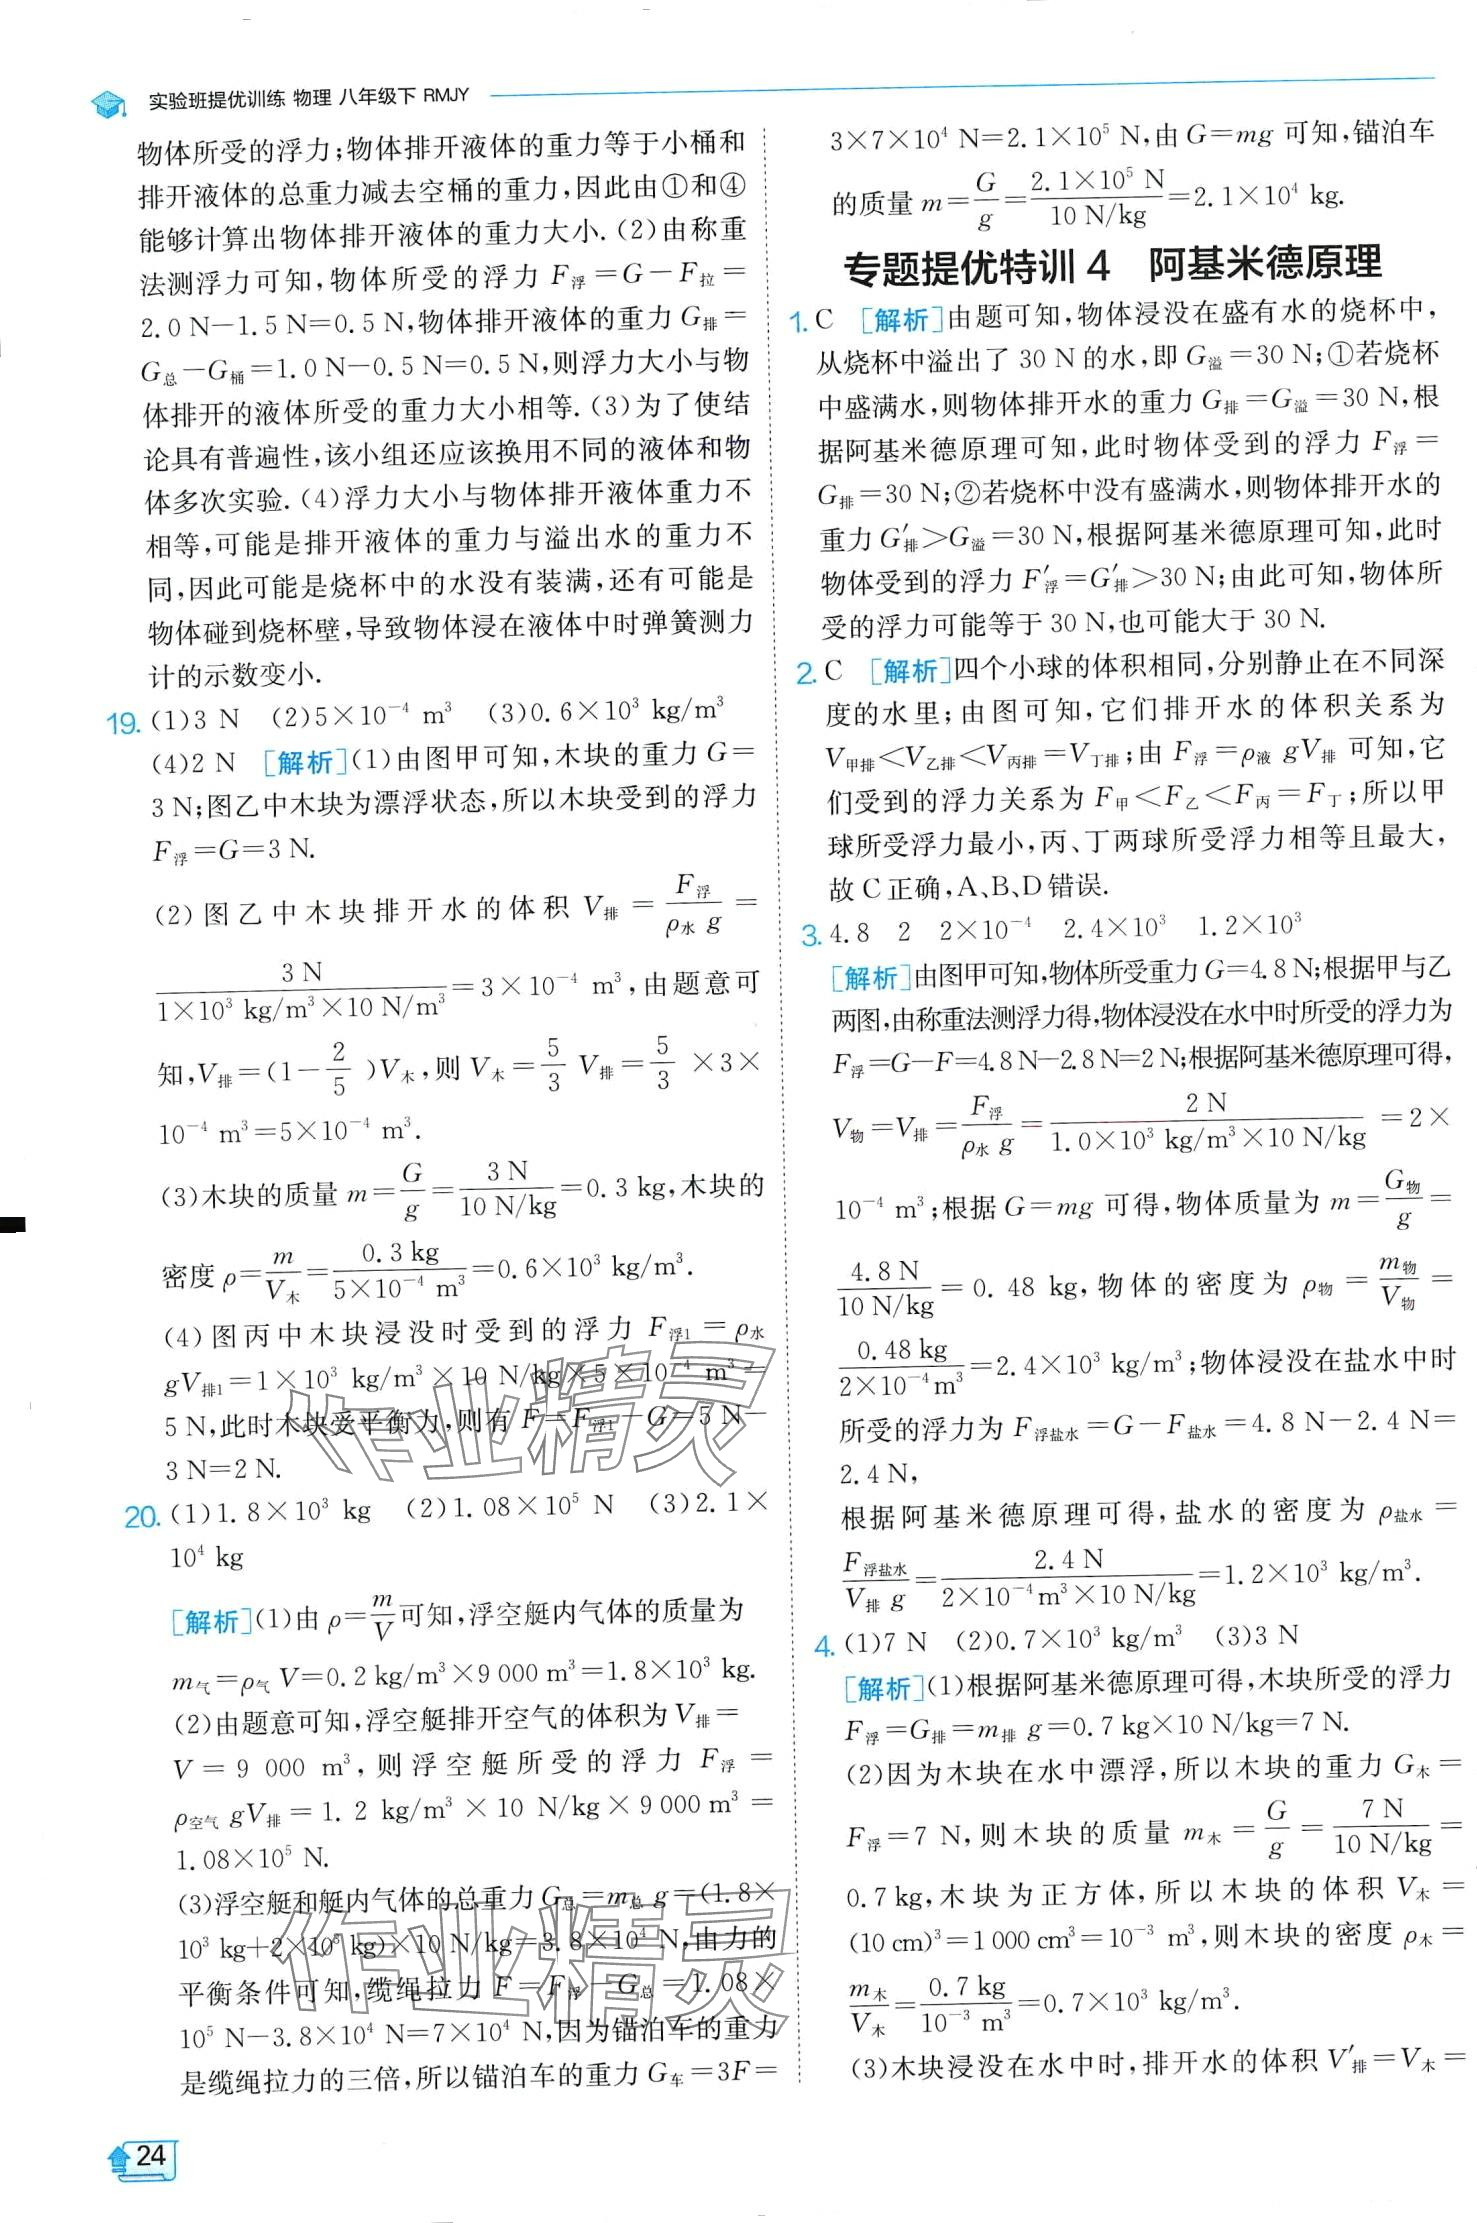 实验班提优训练 物理 八年级下 RMJY
物体所受的浮力;物体排开液体的重力等于小桶和
排开液体的总重力减去空桶的重力,因此由①和④
能够计算出物体排开液体的重力大小.(2)由称重
法测浮力可知,物体所受的浮力 F浮=G-F拉=
2.0 N-1.5 N=0.5 N,物体排开液体的重力 G排=
G总-G桶=1.0 N-0.5 N=0.5 N,则浮力大小与物
体排开的液体所受的重力大小相等.(3)为了使结
论具有普遍性,该小组还应该换用不同的液体和物
体多次实验.(4)浮力大小与物体排开液体重力不
相等,可能是排开液体的重力与溢出水的重力不
同,因此可能是烧杯中的水没有装满,还有可能是
物体碰到烧杯壁,导致物体浸在液体中时弹簧测力
计的示数变小.
19. (1)3 N (2)5×10⁻⁴ m³ (3)0.6×10³ kg/m³
(4)2 N [解析](1)由图甲可知,木块的重力 G=
3 N;图乙中木块为漂浮状态,所以木块受到的浮力
F浮=G=3 N.
(2)图乙中木块排开水的体积 V排=F浮/(ρ水 g)=
3 N/(1×10³ kg/m³×10 N/m³)=3×10⁻⁴ m³,由题意可
知,V排=(1-2/5)V木,则 V木=5/3 V排=5/3×3×
10⁻⁴ m³=5×10⁻⁴ m³.
(3)木块的质量 m=G/g=3 N/(10 N/kg)=0.3 kg,木块的
密度 ρ=m/V木=0.3 kg/(5×10⁻⁴ m³)=0.6×10³ kg/m³.
(4)图丙中木块浸没时受到的浮力 F浮1=ρ水
gV排1=1×10³ kg/m³×10 N/kg×5×10⁻⁴ m³=
5 N,此时木块受平衡力,则有 F=F浮1-G=5 N-
3 N=2 N.
20. (1)1.8×10³ kg (2)1.08×10⁵ N (3)2.1×
10⁴ kg
[解析](1)由 ρ=m/V可知,浮空艇内气体的质量为
m气=ρ气 V=0.2 kg/m³×9 000 m³=1.8×10³ kg.
(2)由题意可知,浮空艇排开空气的体积为 V排=
V=9 000 m³,则浮空艇所受的浮力 F浮=
ρ空气 gV排=1.2 kg/m³×10 N/kg×9 000 m³=
1.08×10⁵ N.
(3)浮空艇和艇内气体的总重力 G总=m总 g=(1.8×
10³ kg+2×10³ kg)×10 N/kg=3.8×10⁴ N,由力的
平衡条件可知,缆绳拉力 F=F浮-G总=1.08×
10⁵ N-3.8×10⁴ N=7×10⁴ N,因为锚泊车的重力
是缆绳拉力的三倍,所以锚泊车的重力 G车=3F=
3×7×10⁴ N=2.1×10⁵ N,由 G=mg 可知,锚泊车
的质量 m=G/g=2.1×10⁵ N/(10 N/kg)=2.1×10⁴ kg.
专题提优特训 4 阿基米德原理
1. C [解析]由题可知,物体浸没在盛有水的烧杯中,
从烧杯中溢出了 30 N 的水,即 G溢=30 N;①若烧杯
中盛满水,则物体排开水的重力 G排=G溢=30 N,根
据阿基米德原理可知,此时物体受到的浮力 F浮=
G排=30 N;②若烧杯中没有盛满水,则物体排开水的
重力 G′排>G溢=30 N,根据阿基米德原理可知,此时
物体受到的浮力 F′浮=G′排>30 N;由此可知,物体所
受的浮力可能等于 30 N,也可能大于 30 N.
2. C [解析]四个小球的体积相同,分别静止在不同深
度的水里;由图可知,它们排开水的体积关系为
V甲排<V乙排<V丙排=V丁排;由 F浮=ρ液 gV排 可知,它
们受到的浮力关系为 F甲<F乙<F丙=F丁;所以甲
球所受浮力最小,丙、丁两球所受浮力相等且最大,
故 C 正确,A、B、D 错误.
3. 4.8 2 2×10⁻⁴ 2.4×10³ 1.2×10³
[解析]由图甲可知,物体所受重力 G=4.8 N;根据甲与乙
两图,由称重法测浮力得,物体浸没在水中时所受的浮力为
F浮=G-F=4.8 N-2.8 N=2 N;根据阿基米德原理可得,
V物=V排=F浮/(ρ水 g)=2 N/(1.0×10³ kg/m³×10 N/kg)=2×
10⁻⁴ m³;根据 G=mg 可得,物体质量为 m=G物/g=
4.8 N/(10 N/kg)=0.48 kg,物体的密度为 ρ物=m物/V物=
0.48 kg/(2×10⁻⁴ m³)=2.4×10³ kg/m³;物体浸没在盐水中时
所受的浮力为 F浮盐水=G-F盐水=4.8 N-2.4 N=
2.4 N,
根据阿基米德原理可得,盐水的密度为 ρ盐水=
F浮盐水/(V排 g)=2.4 N/(2×10⁻⁴ m³×10 N/kg)=1.2×10³ kg/m³.
4. (1)7 N (2)0.7×10³ kg/m³ (3)3 N
[解析](1)根据阿基米德原理可得,木块所受的浮力
F浮=G排=m排 g=0.7 kg×10 N/kg=7 N.
(2)因为木块在水中漂浮,所以木块的重力 G木=
F浮=7 N,则木块的质量 m木=G/g=7 N/(10 N/kg)=
0.7 kg,木块为正方体,所以木块的体积 V木=
(10 cm)³=1 000 cm³=10⁻³ m³,则木块的密度 ρ木=
m木/V木=0.7 kg/(10⁻³ m³)=0.7×10³ kg/m³.
(3)木块浸没在水中时,排开水的体积 V′排=V木=
作业精灵
作业精灵
24